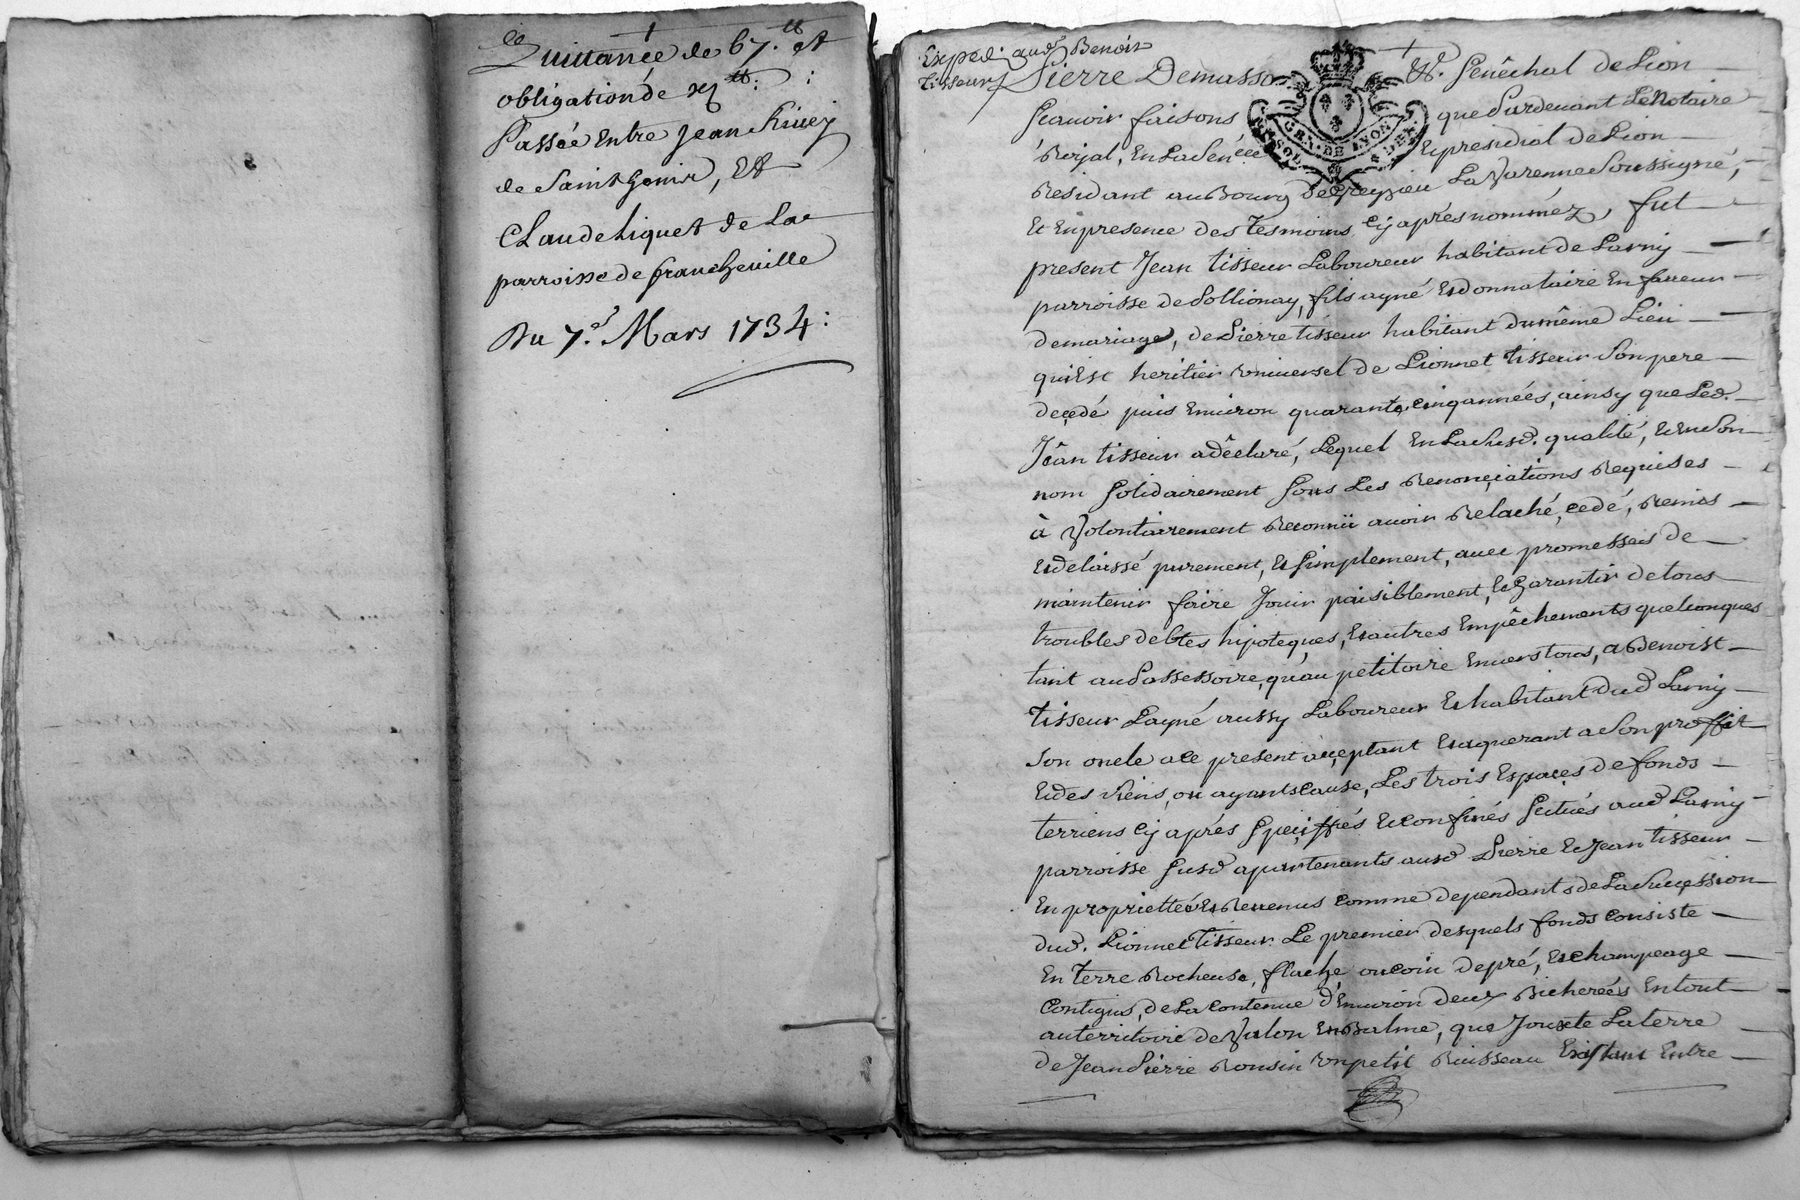 Quittance de 67.tt et
obligation de xj tt:
Passée Entre Jean
de Saint Genis, Et
Claude Liquet de La
parroisse de francheville
Du 7.e Mars 1734:
Exped: aud Benoist
tisseur
Pierre Demasso Sénéchal de Lion
Scavoir faisons que Pardevant Le Notaire
Royal, En La Sén.cée Et presidial de Lion
Residant au Bourg de Greyzieu La Varenne Soussigné,
Et En presence des Tesmoins cy aprés nommez, fut
present Jean tisseur Laboureur habitant de Larny
parroisse de Pollionay, fils ayné Et donnataire En faueur
de mariage, de Pierre tisseur habitant du même Lieu
qui Est heritier vniuersel de Lionnet tisseur Son pere
deçedé puis Enuiron quarante cinq années, ainsy que Led.
Jêan tisseur a dêclaré, Lequel En La Susd. qualité, Et En Son
nom Solidairement Sous Les Renonçiations Requises
à Volontairement Reconnü auoir Relaché, cedé, Remis
Et delaissé purement, Et Simplement, auec promesses de
maintenir faire Jouir paisiblement, Et Garantir de tous
troubles debtes hipoteques, Et autres Empêchements quelconques
tant au Possessoire, qu'au petitoire Enuers tous, a Benoist
tisseur Layné aussy Laboureur Et habitant dud Larny
Son oncle a ce present acçeptant Et aquerant a Son proffit
Et des Siens, ou ayants cause, Les trois Espaçes de fonds
terriens cy aprés Speçiffiés Et confinés Scitués aud Larny
parroisse Susd apartenants ausd Pierre Et Jean tisseur
En proprietté Et Reuenus comme dependants de La Sucçession
dud. Lionnet Tisseur Le premier desquels fonds consiste
En terre Rocheuse, flache ou coin de pré, Et champeage
Contigus, de La contenue d'Enuiron deux Bicherées En tout
au territoire de Valon En Balme, que Jouxte La terre
de Jean Pierre Ronsin vn petit Ruisseau Existant Entre